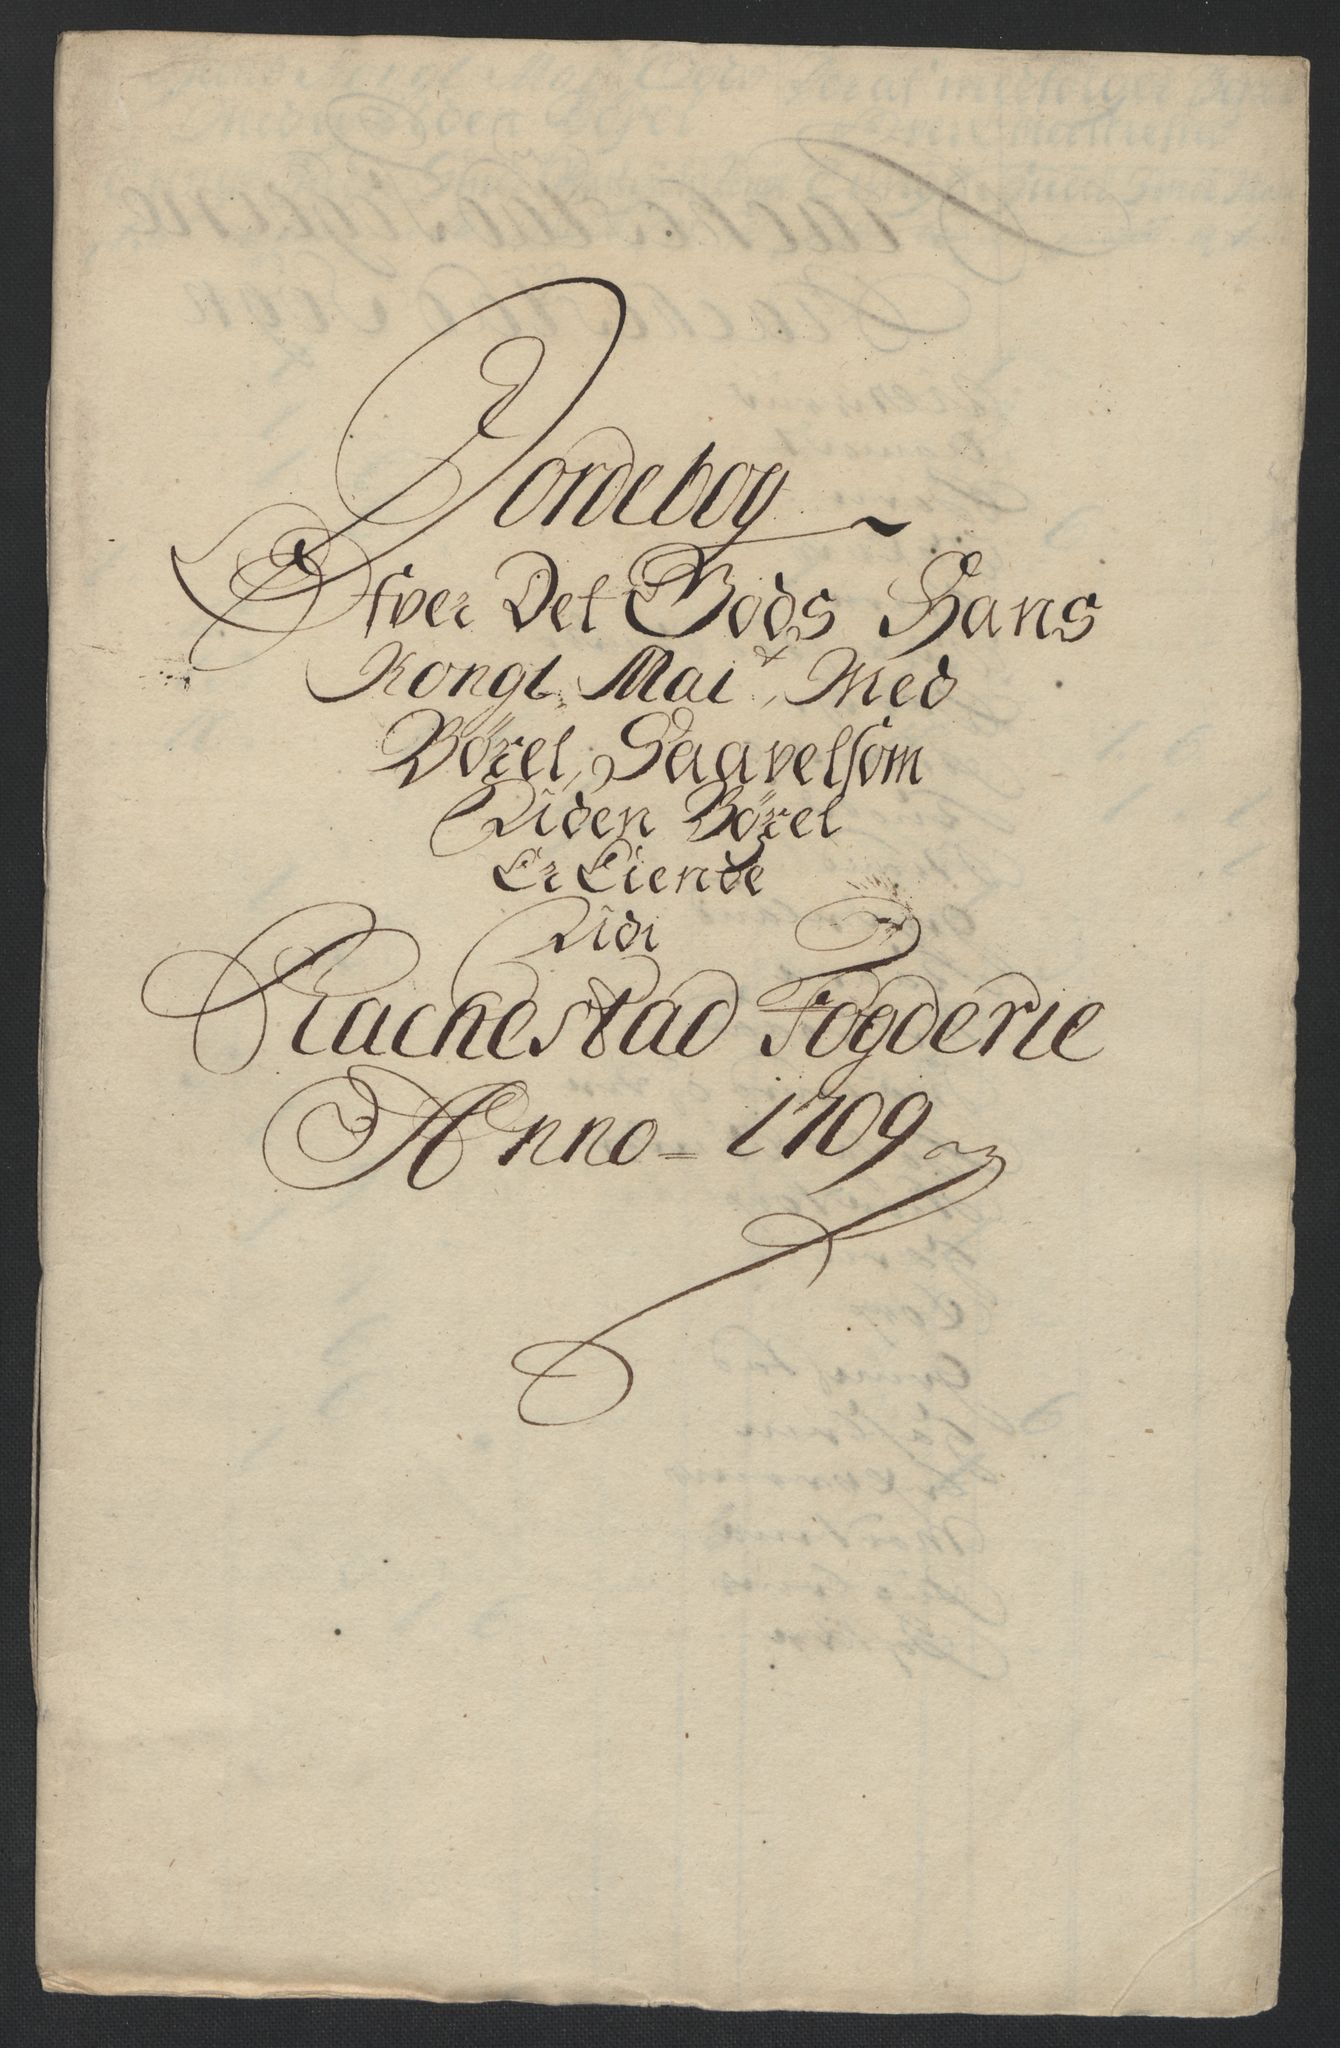 Jordebog
Ofver Det Gods Hans
Kongl. Mait. Med
Børel, Saavelsom
Uden Børel
Er Eiende
Udi
Rackestad Fogderie
Anno = 1709